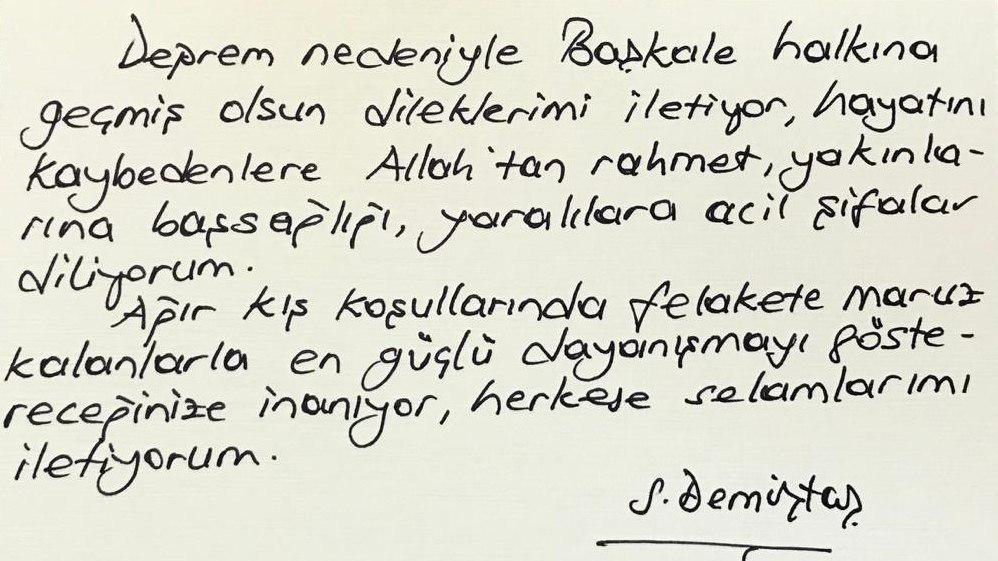 Deprem nedeniyle Başkale halkına
geçmiş olsun dileklerimi iletiyor, hayatını
kaybedenlere Allah'tan rahmet, yakınla-
rına başsağlığı, yaralılara acil şifalar
diliyorum.
Ağır kış koşullarında felakete maruz
kalanlarla en güçlü dayanışmayı göste-
receğinize inanıyor, herkese selamlarımı
iletiyorum.
S. Demirtaş